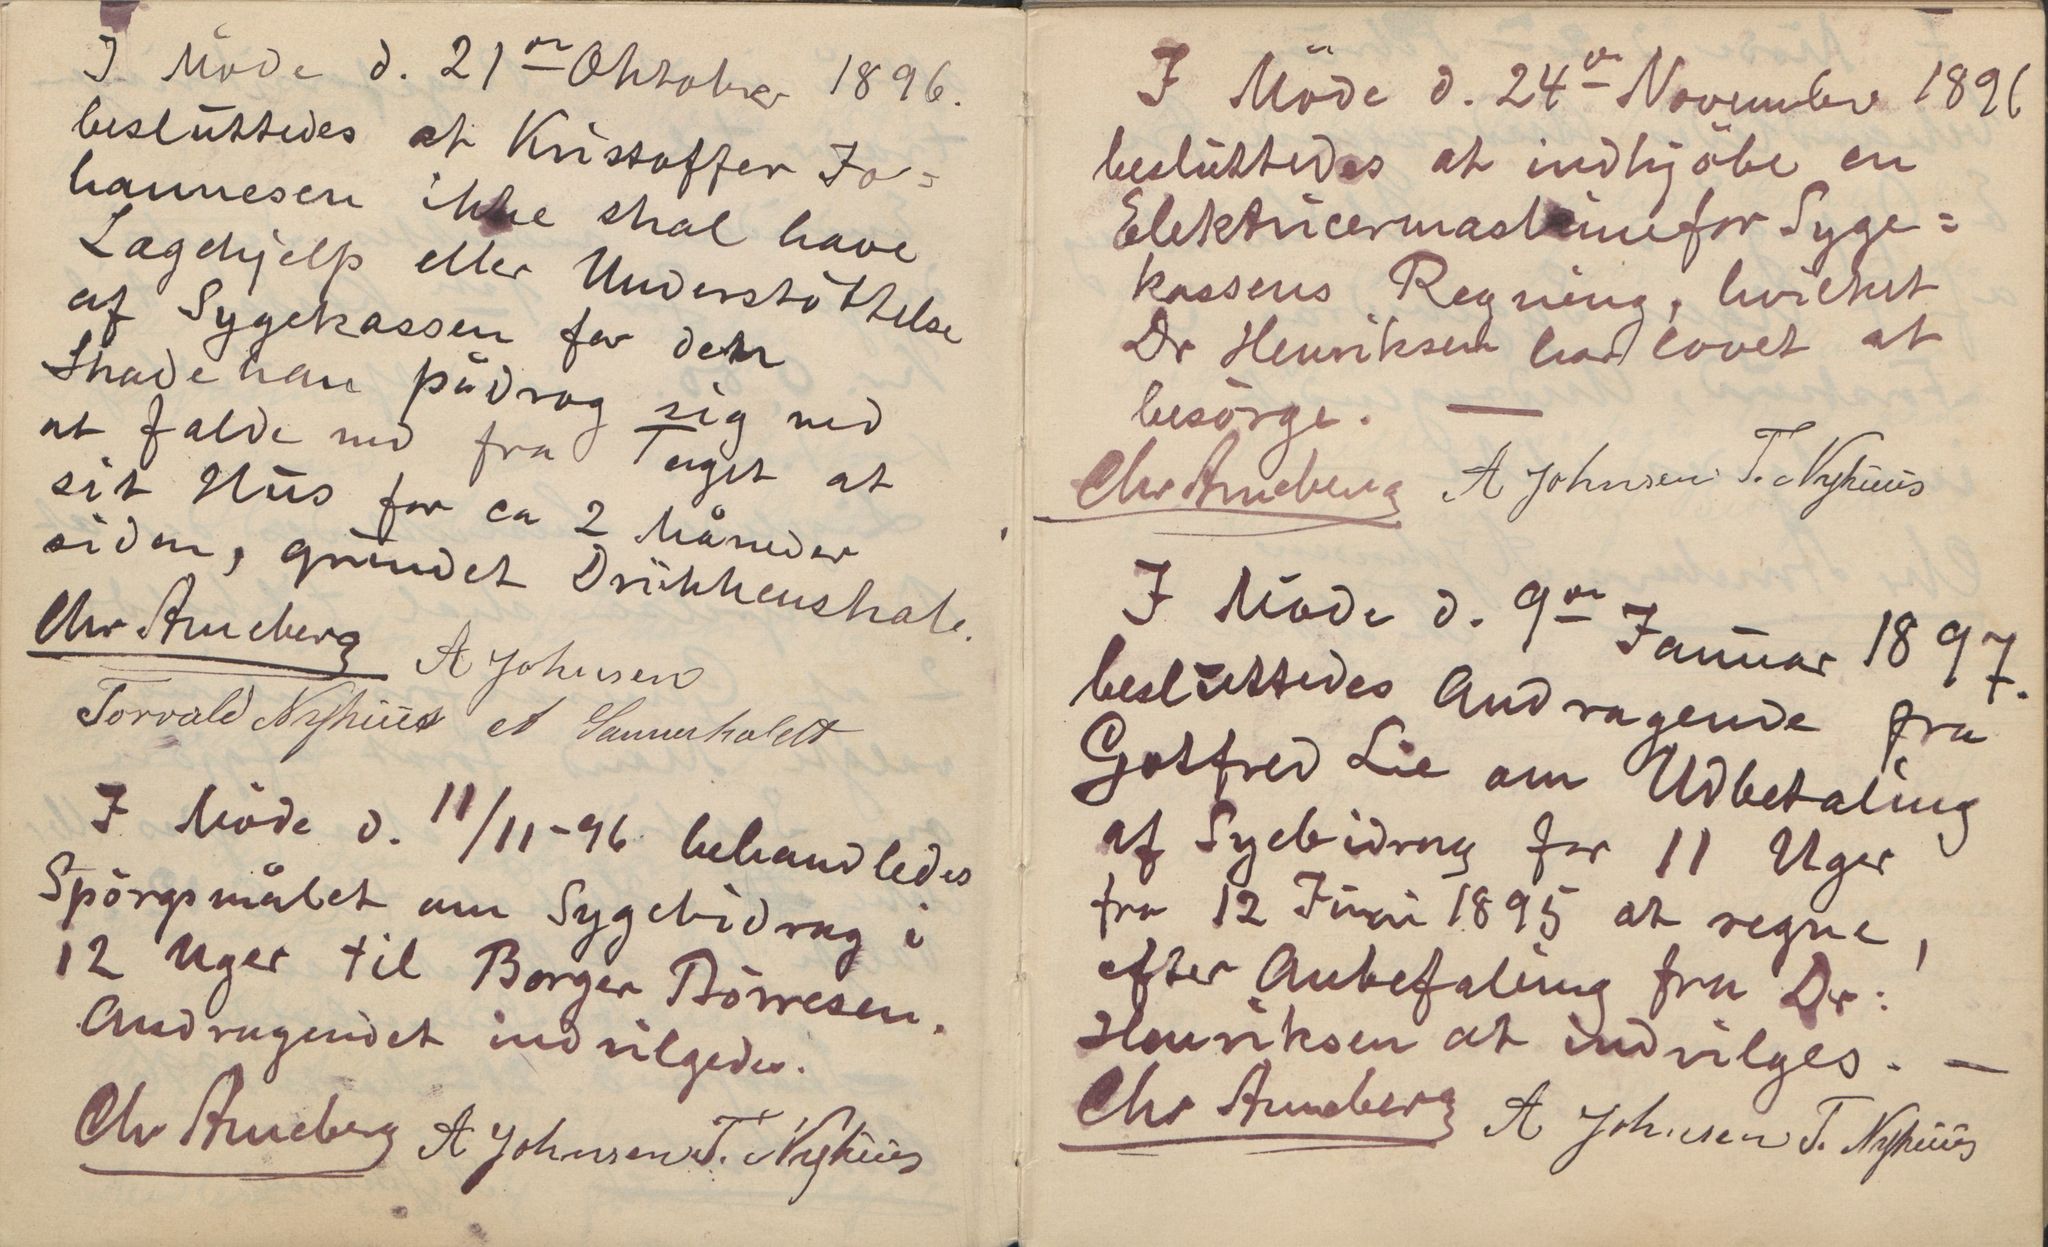 I Möde d. 21de Oktober 1896.
besluttedes at Kristoffer Jo=
hannesen ikke skal have
Lægehjelp eller Understöttelse
af Sygekassen for den
Skade han pådrog sig ved
at falde ned fra Taget at
sit Hus for ca 2 Måneder
siden, grundet Drukkenskab.
Chr Arneberg A Johnsen
Torvald Nyhuus A Sannerholdt
I Möde d. 11/11-96 behandledes
Spörgsmålet om Sygebidrag i
12 Uger til Borger Börresen.
Andragendet indvilgedes.
Chr Arneberg A Johnsen T. Nyhuus
I Möde d. 24de November 1896
besluttedes at indkjöbe en
Elektricermaskine for Syge=
kassens Regning, hvilket
Dr Henriksen har lovet at
besörge. —
Chr Arneberg A Johnsen T. Nyhuus
I Möde d. 9de Januar 1897.
besluttedes Andragende fra
Gotfred Lie om Udbetaling
af Sygebidrag for 11 Uger
fra 12 Juni 1895 at regne,
efter Anbefaling fra Dr:
Henriksen at indvilges. —
Chr Arneberg A Johnsen T. Nyhuus